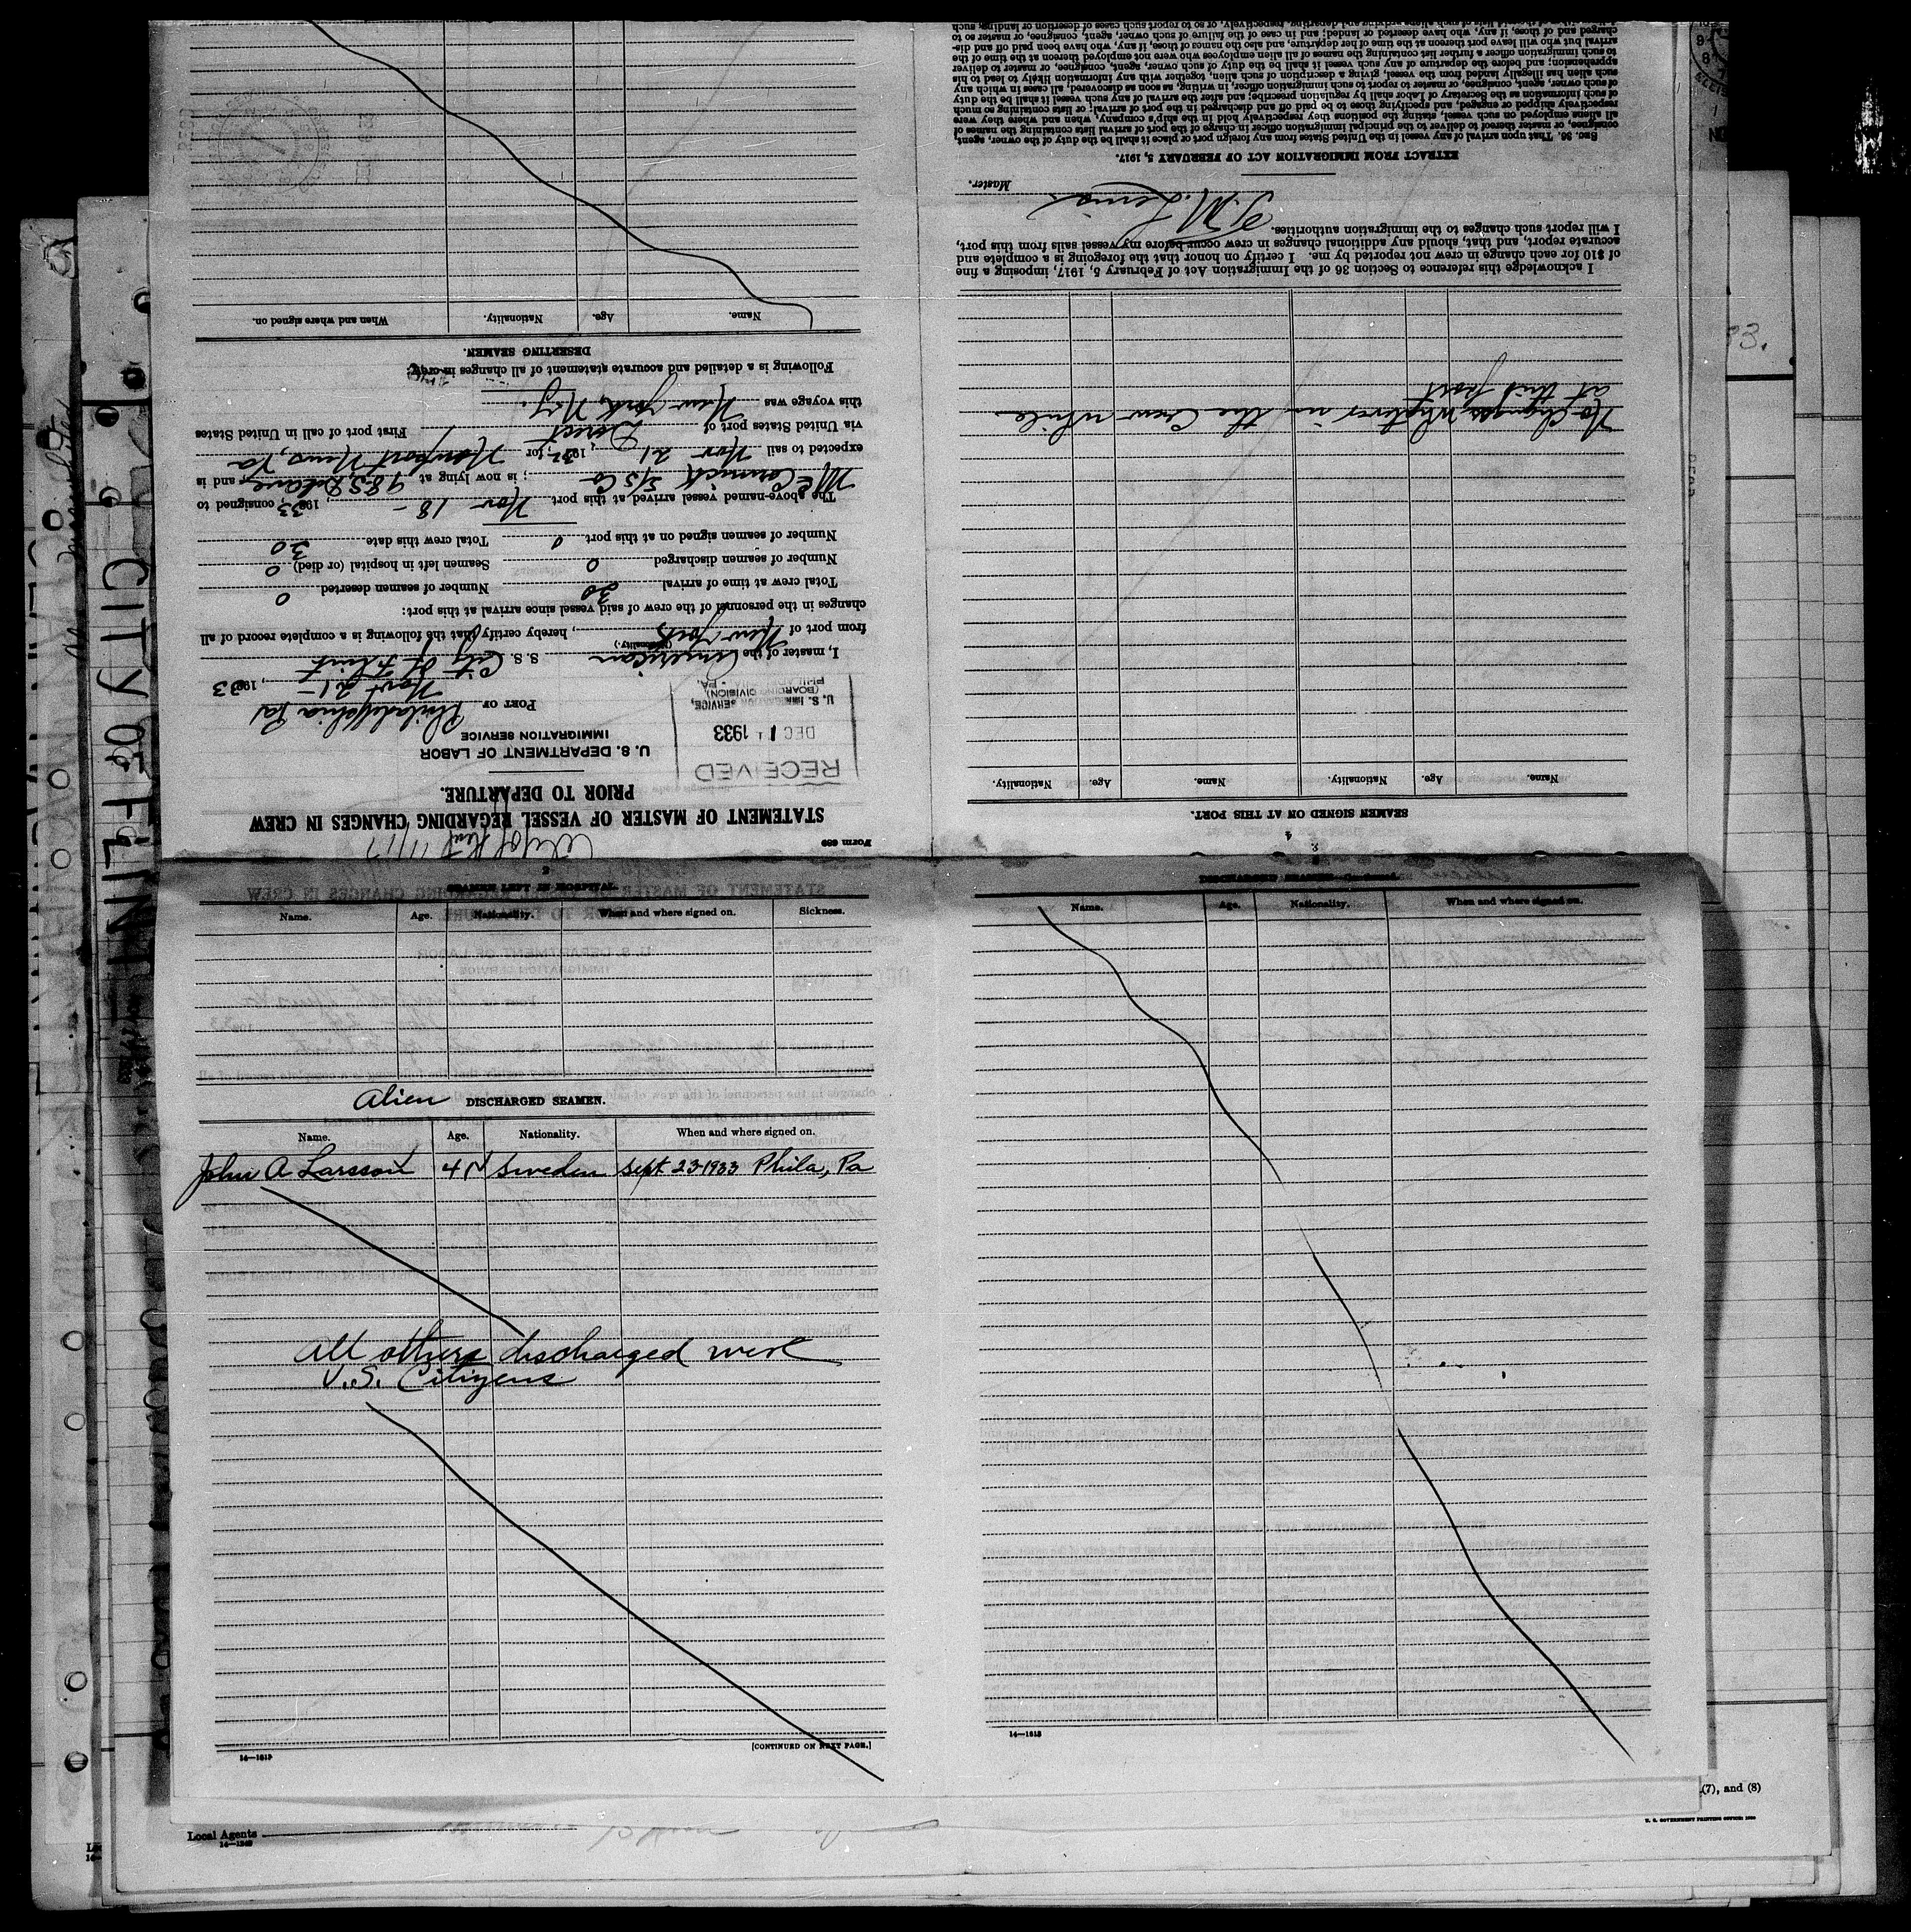 Form 689
STATEMENT OF MASTER OF VESSEL REGARDING CHANGES IN CREW
PRIOR TO DEPARTURE.
U. S. DEPARTMENT OF LABOR
IMMIGRATION SERVICE
RECEIVED
DEC 1 1933
U. S. IMMIGRATION SERVICE,
(BOARDING DIVISION)
PHILADELPHIA - PA.
PORT OF Philadelphia Pa
Nov 21 -, 1933
I, master of the American S. S. City of Flint
(Nationality.)
from port of New York, hereby certify that the following is a complete record of all
changes in the personnel of the crew of said vessel since arrival at this port:
Total crew at time of arrival 30 Number of seamen deserted 0
Number of seamen discharged 0 Seamen left in hospital (or died) 0
Number of seamen signed on at this port 0 Total crew this date 30
The above-named vessel arrived at this port Nov - 18 -, 1933, consigned to
McCormick S/S Co; is now lying at 98 S. Delaware, and is
expected to sail Nov 21, 193, for Newport News, Va
via United States port of Direct First port of call in United States
this voyage was New York, N.Y.
Following is a detailed and accurate statement of all changes in crew:
DESERTING SEAMEN.
Name. Age. Nationality. When and where signed on.
4
SEAMEN SIGNED ON AT THIS PORT.
Name. Age. Nationality. Name. Age. Nationality.
No Changes whatever in the Crew while
at this port
I acknowledge this reference to Section 36 of the Immigration Act of February 5, 1917, imposing a fine
of $10 for each change in crew not reported by me. I certify on honor that the foregoing is a complete and
accurate report, and that, should any additional changes in crew occur before my vessel sails from this port,
I will report such changes to the immigration authorities.
Master.
EXTRACT FROM IMMIGRATION ACT OF FEBRUARY 5, 1917.
SEC. 36. That upon arrival of any vessel in the United States from any foreign port or place it shall be the duty of the owner, agent,
consignee, or master thereof to deliver to the principal immigration officer in charge of the port of arrival lists containing the names of
all aliens employed on such vessel, stating the positions they respectively hold in the ship's company, when and where they were
respectively shipped or engaged, and specifying those to be paid off and discharged in the port of arrival; or lists containing so much
of such information as the Secretary of Labor shall by regulation prescribe; and after the arrival of any such vessel it shall be the duty
of such owner, agent, consignee, or master to report to such immigration officer, in writing, as soon as discovered, all cases in which any
such alien has illegally landed from the vessel, giving a description of such alien, together with any information likely to lead to his
apprehension; and before the departure of any such vessel it shall be the duty of such owner, agent, consignee, or master to deliver
to such immigration officer a further list containing the names of all alien employees who were not employed thereon at the time of the
arrival but who will leave port thereon at the time of her departure, and also the names of those, if any, who have been paid off and dis-
charged and of those, if any, who have deserted or landed; and in case of the failure of such owner, agent, consignee, or master so to
2
SEAMEN LEFT IN HOSPITAL.
Name. Age. Nationality. When and where signed on. Sickness.
Alien DISCHARGED SEAMEN.
Name. Age. Nationality. When and where signed on.
John A Larsson Sweden Sept 23-1933 Phila, Pa
All others discharged were
U.S. Citizens
14—1813
[CONTINUED ON NEXT PAGE.]
3
DISCHARGED SEAMEN—Continued.
Name. Age. Nationality. When and where signed on.
14—1813
CITY OF FLINT
(7), and (8)
U. S. GOVERNMENT PRINTING OFFICE
Local Agents
14—1240